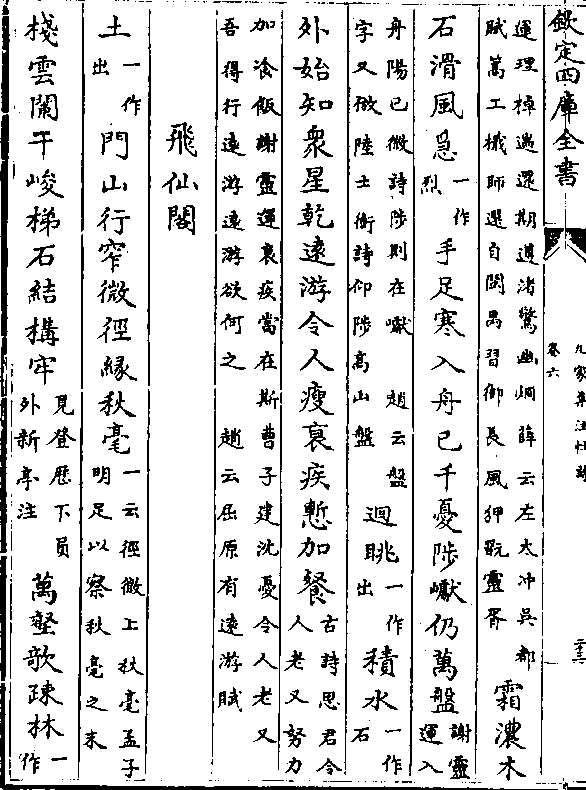 欽定四庫全書
九家集注杜詩
卷六
二十三
運理棹遄還期遵渚騖幽炯薛云左太冲吳都
賦萬工檝師選自閩禺習御長風狎翫靈胥
霜濃木
石滑風急
一作
烈
手足寒入舟已千憂陟巘仍萬盤
謝靈
運入
舟陽已微詩陟則在巘　趙云盤
字又倣陸士衡詩仰陟高山盤
迴眺
一作
出
積水
一作
石
外始知衆星乾遠游令人瘦衰疾慙加餐
古詩思君令
人老又努力
加湌飯謝靈運衰疾當在斯曹子建沈憂令人老又
吾得行遠游遠游欲何之　趙云屈原有遠游賦
飛仙閣
土
一作
出
門山行窄微徑緣秋毫
一云徑微上秋毫孟子
明足以察秋毫之末
棧雲闌干峻梯石結構牢
見登歷下員
外新亭注
萬壑歌疎林
一
作